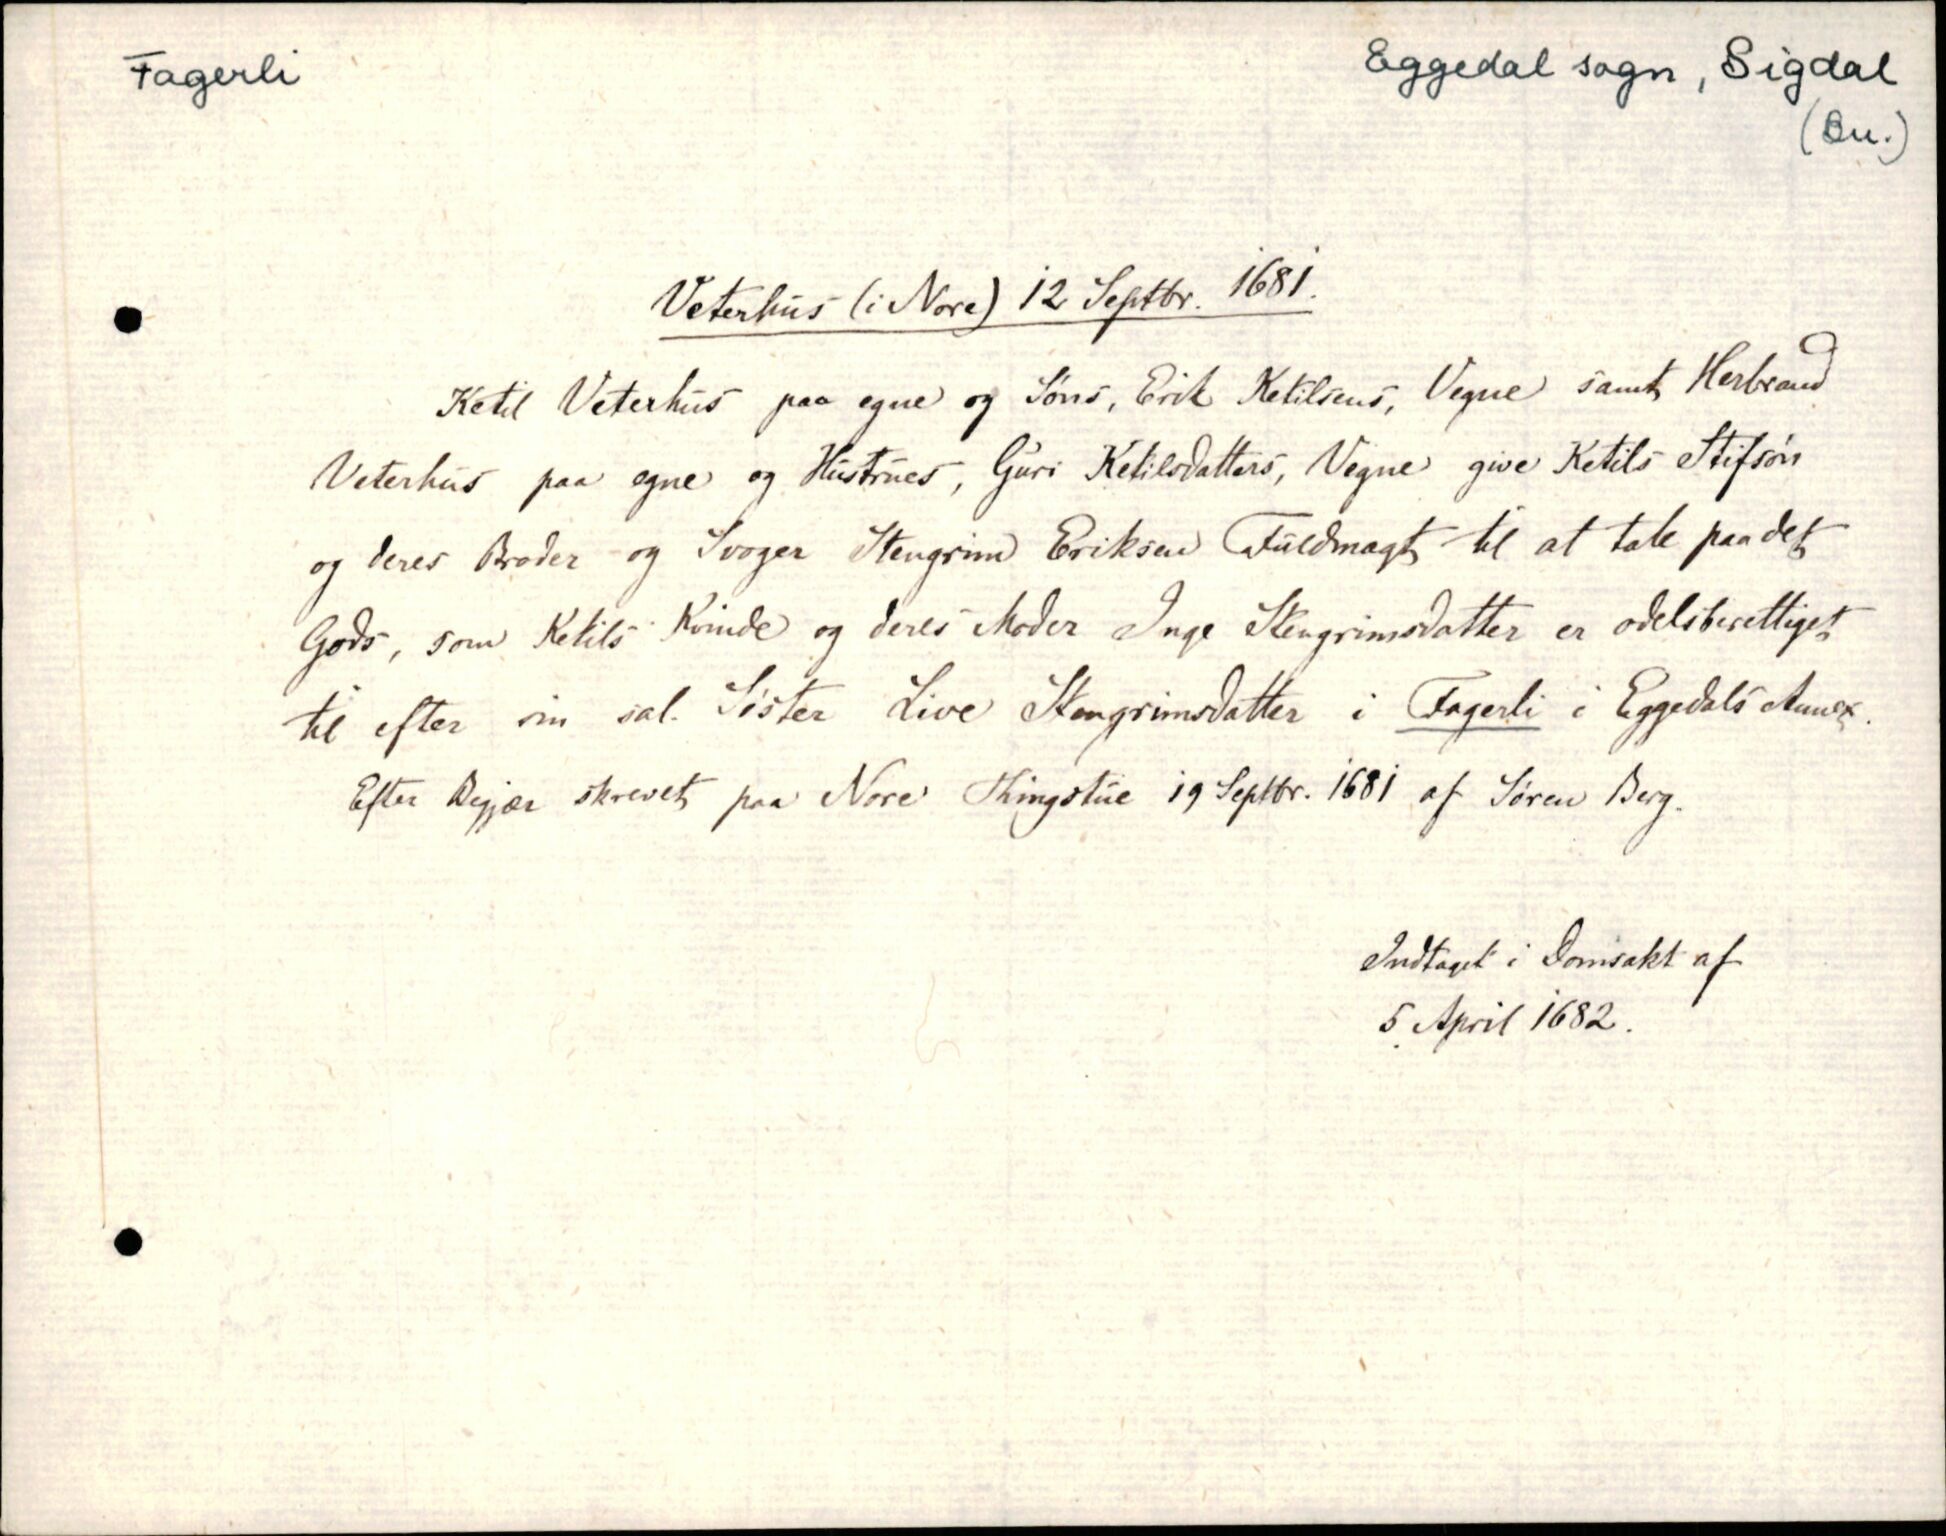 Fagerli
Eggedal sogn, Sigdal
(Bu.)
Veterhus (i Nore) 12 Septbr. 1681.
Ketil Veterhus paa egne og Søns, Erik Ketilsens, Vegne samt Herbrand
Veterhus paa egne og Hustrues, Guri Ketilsdatters, Vegne give Ketils Stifsøn
og deres Broder og Svoger Stengrim Eriksen Fuldmagt til at tale paa det
Gods, som Ketils Kvinde og deres Moder Inge Stengrimsdatter er odelsberettiget
til efter sin sal. Søster Live Stengrimsdatter i Fagerli i Eggedals Annex.
Efter Begjær skrevet paa Nore Thingstue 19 Septbr. 1681 af Søren Berg.
Indtaget i Domsakt af
5 April 1682.